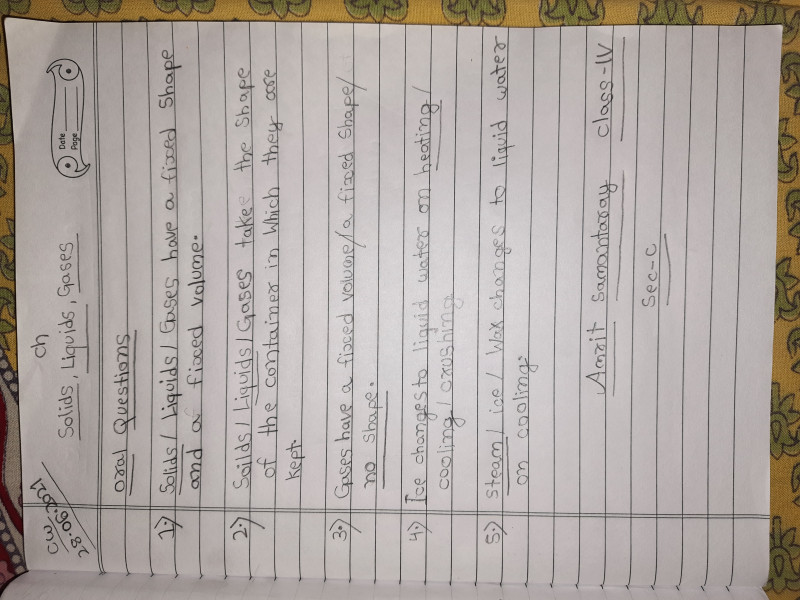 CW
28.06.2021
ch
Solids, Liquids, Gases
Date
Page
Oral Questions
1.) Solids/ Liquids/ Gases have a fixed Shape
and a fixed volume.
2.) Soilds/ Liquids/ Gases takes the Shape
of the container in Which they are
kept.
3.) Gases have a fixed volume/a fixed Shape/
no shape.
4.) Ice changes to liquid water on heating/
cooling/ crushing
5.) steam/ ice/ Wax changes to liquid water
on cooling.
Amrit Samantaray class-IV
Sec-C